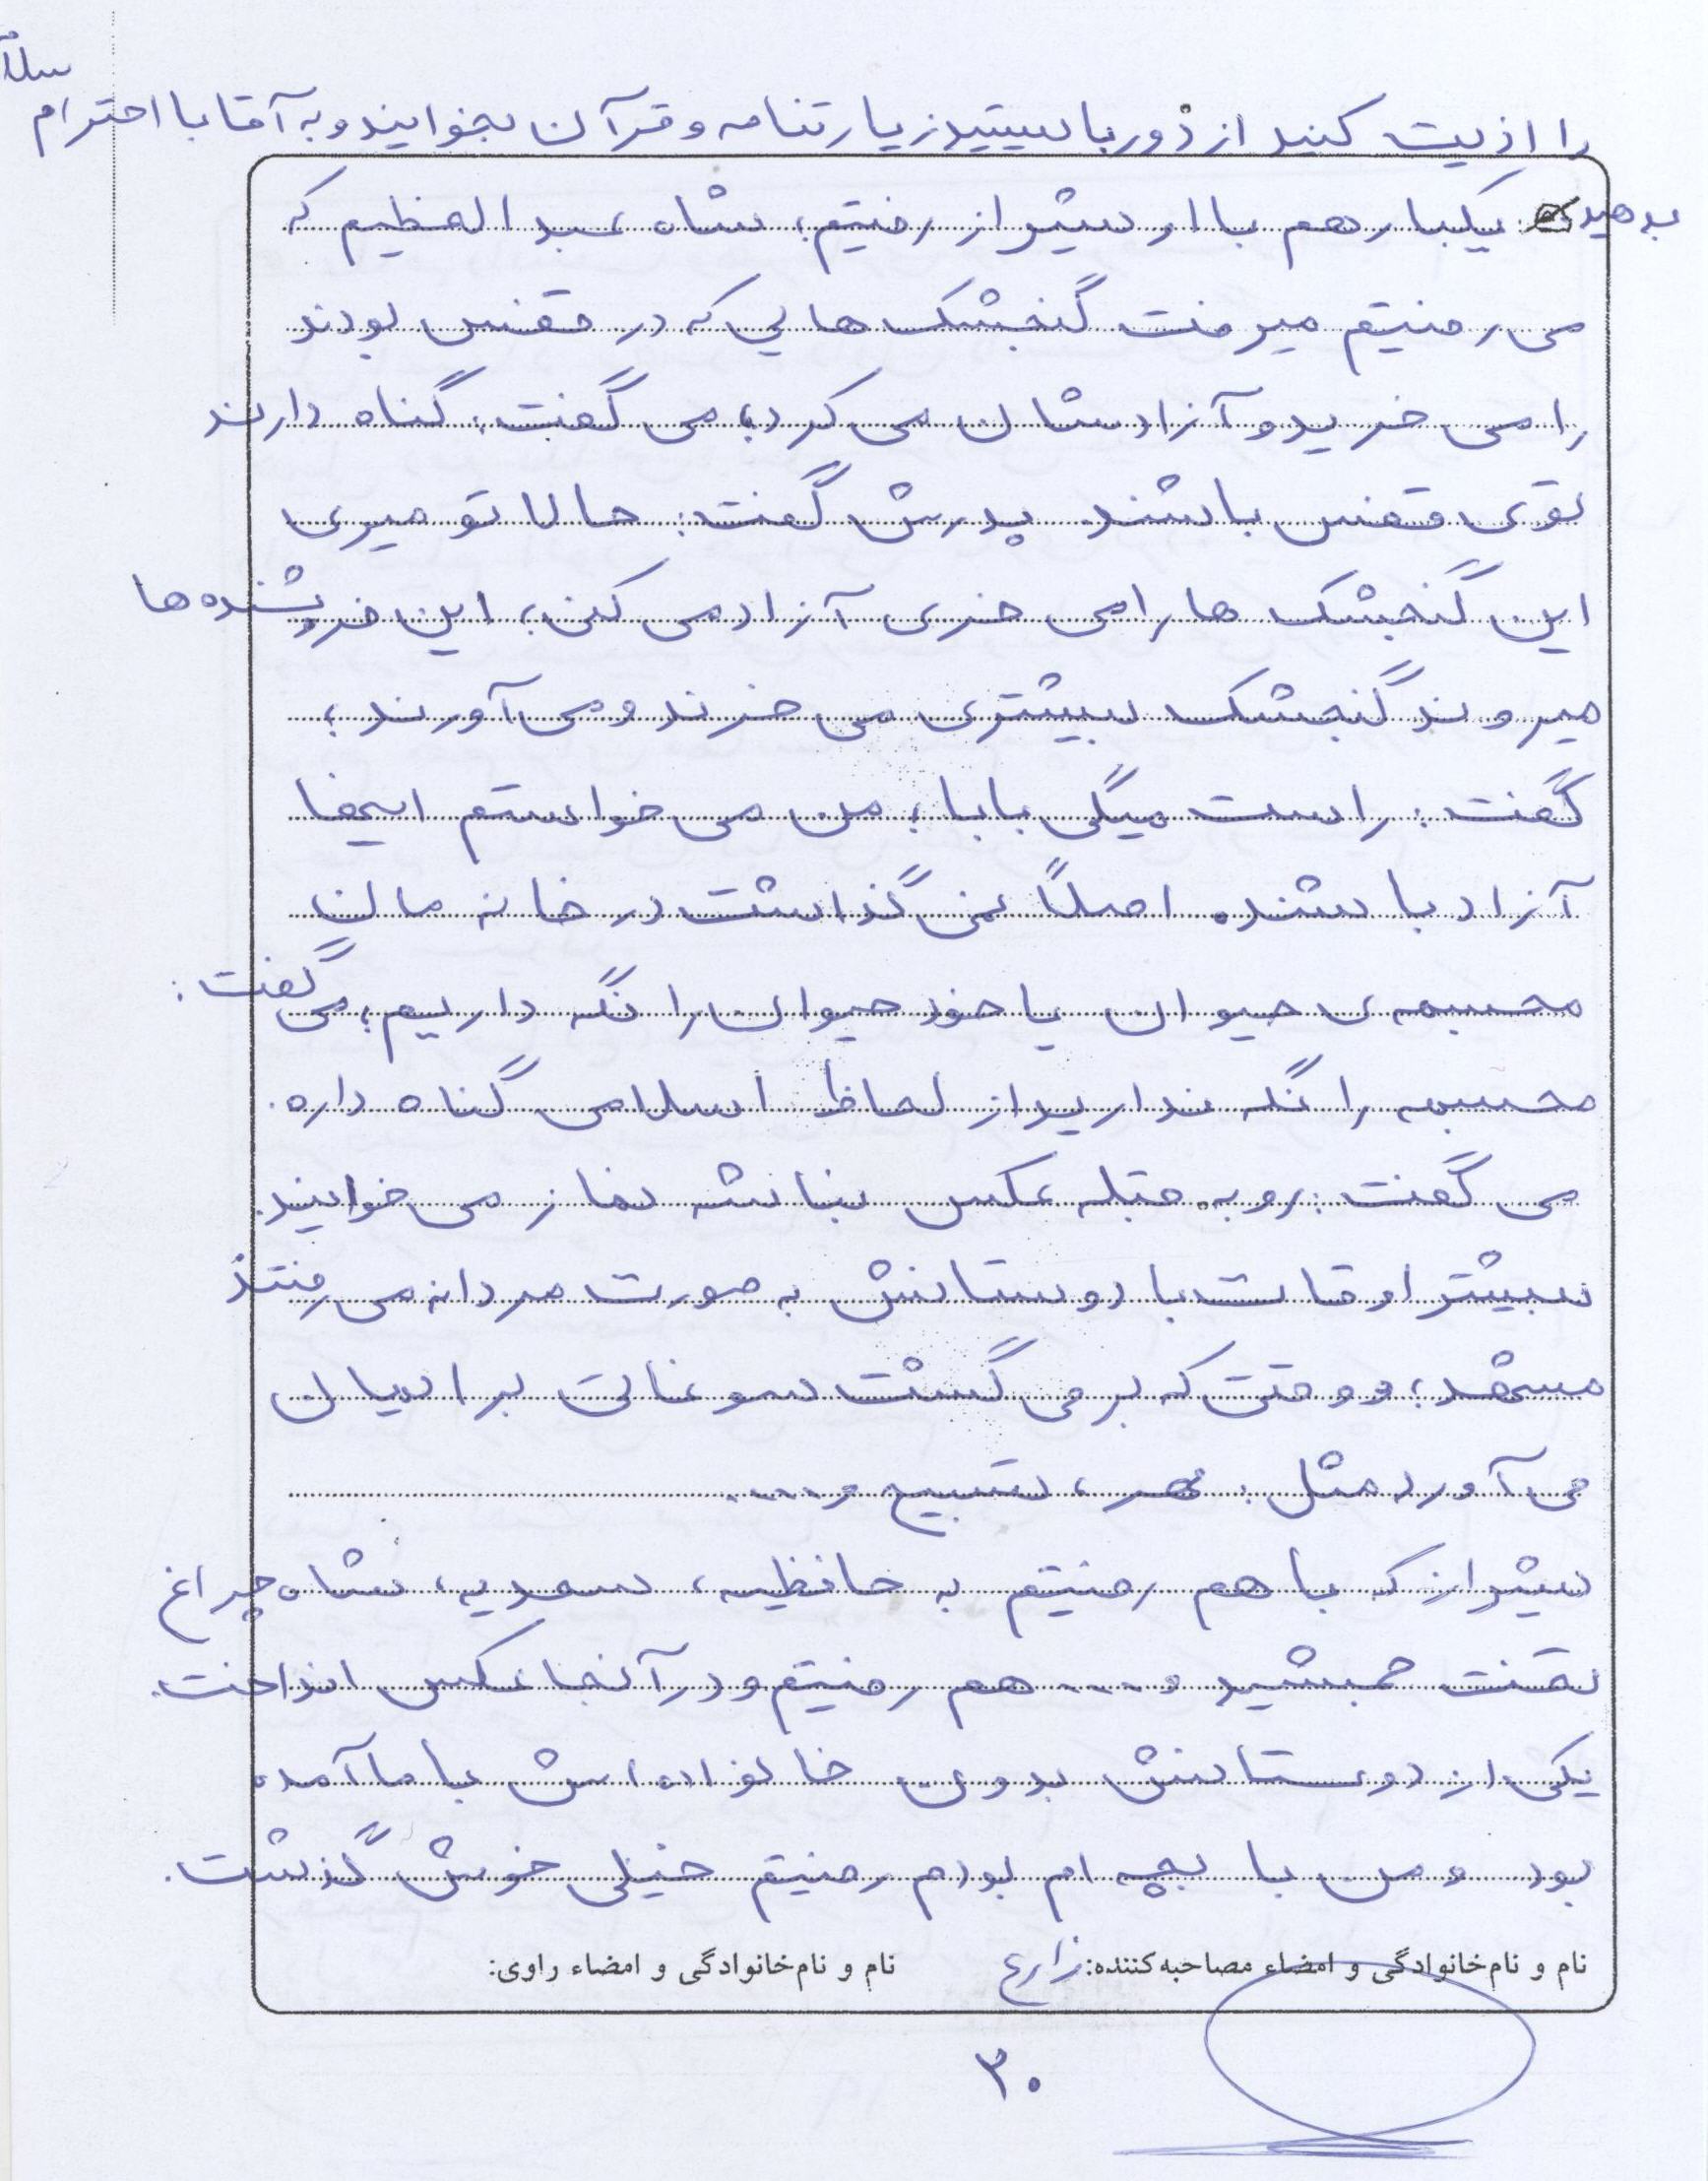 را اذیت کنید از دور بایستید زیارتنامه و قرآن بخوانید و به آقا با احترام سلام
بدهید. یکبار هم با او شیراز رفتیم؛ شاه عبدالعظیم که
می رفتیم میرفت گنجشک هایی که در قفس بودند
را می خرید و آزادشان می کرد؛ می گفت: گناه دارند
توی قفس باشند. پدرش گفت: حالا تو میری
این گنجشک ها را می خری آزاد می کنی؛ این فروشنده ها
میروند گنجشک بیشتری می خرند و می آورند؛
گفت: راست میگی بابا؛ من می خواستم اینها
آزاد باشند. اصلاً نمی گذاشت در خانه مان
مجسمه ی حیوان یا خود حیوان را نگه داریم؛ می گفت:
مجسمه را نگه ندارید از لحاظ اسلامی گناه داره.
می گفت: رو به قبله عکس نباشه نماز می خوانید.
بیشتر اوقات با دوستانش به صورت مردانه می رفتند
مشهد؛ و وقتی که بر می گشت سوغاتی برایمان
می آورد مثل: مهر، تسبیح و....
شیراز که با هم رفتیم به حافظیه، سعدیه، شاه چراغ
تخت جمشید و.... هم رفتیم و در آنجا عکس انداخت.
یکی از دوستانش بدون خانواده اش با ما آمده
بود و من با بچه ام بودم رفتیم خیلی خوش گذشت.
نام و نام‌خانوادگی و امضاء مصاحبه‌کننده: زارع نام و نام‌خانوادگی و امضاء راوی:
۳۰